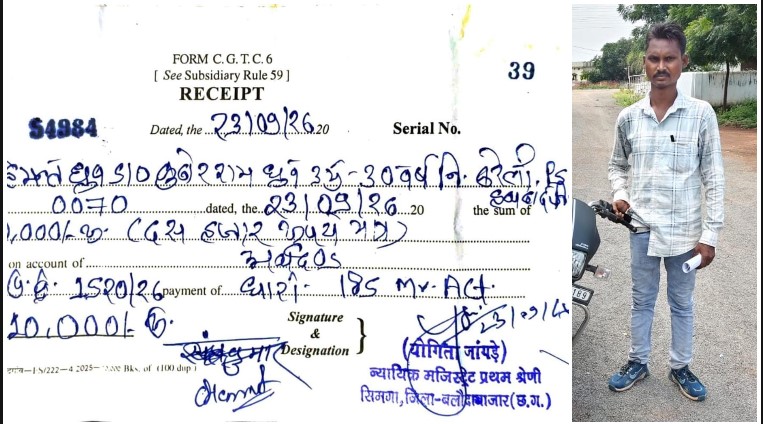 FORM C. G. T. C. 6
39
[ See Subsidiary Rule 59 ]
RECEIPT
S4984
Dated, the 23/09/26 20
Serial No.
ध्रुव S/O कुबेर राम ध्रुव उम्र- 30 वर्ष नि.
0070 dated, the 23/09/26 20 the sum of
,000/- रू. (दस हजार रूपये मात्र)
on account of अर्थदण्ड
1520/26 payment of धारा- 185 Mv. Act.
10,000/- रू.
Signature
&
Designation
23/09/26
(योगिता जांगड़े)
न्यायिक मजिस्ट्रेट प्रथम श्रेणी
सिमगा, जिला-बलौदाबाजार (छ.ग.)
Bks. of (100 dup)
189